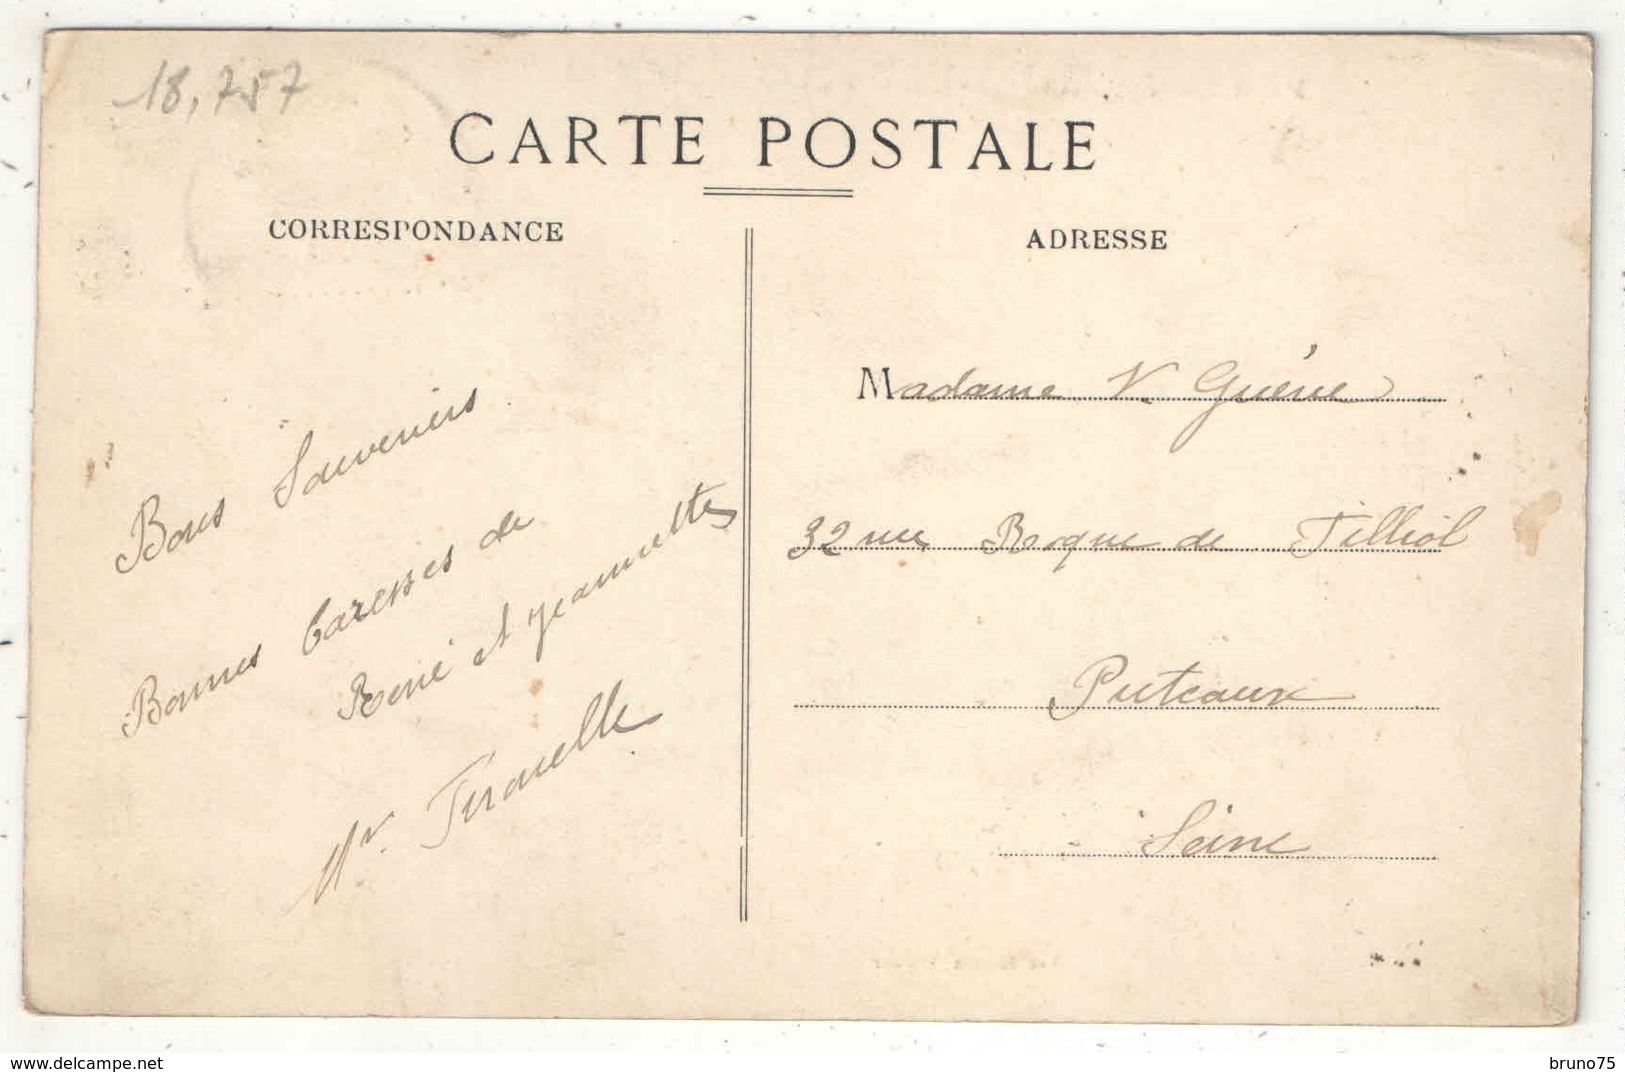 18,757
CARTE POSTALE
CORRESPONDANCE
Bons Souvenirs
Bonnes Caresses de
René et Jeannette
ADRESSE
Madame V. Guérie
32 rue Roque de Filliol
Puteaux
Seine
delcampe.net
bruno75